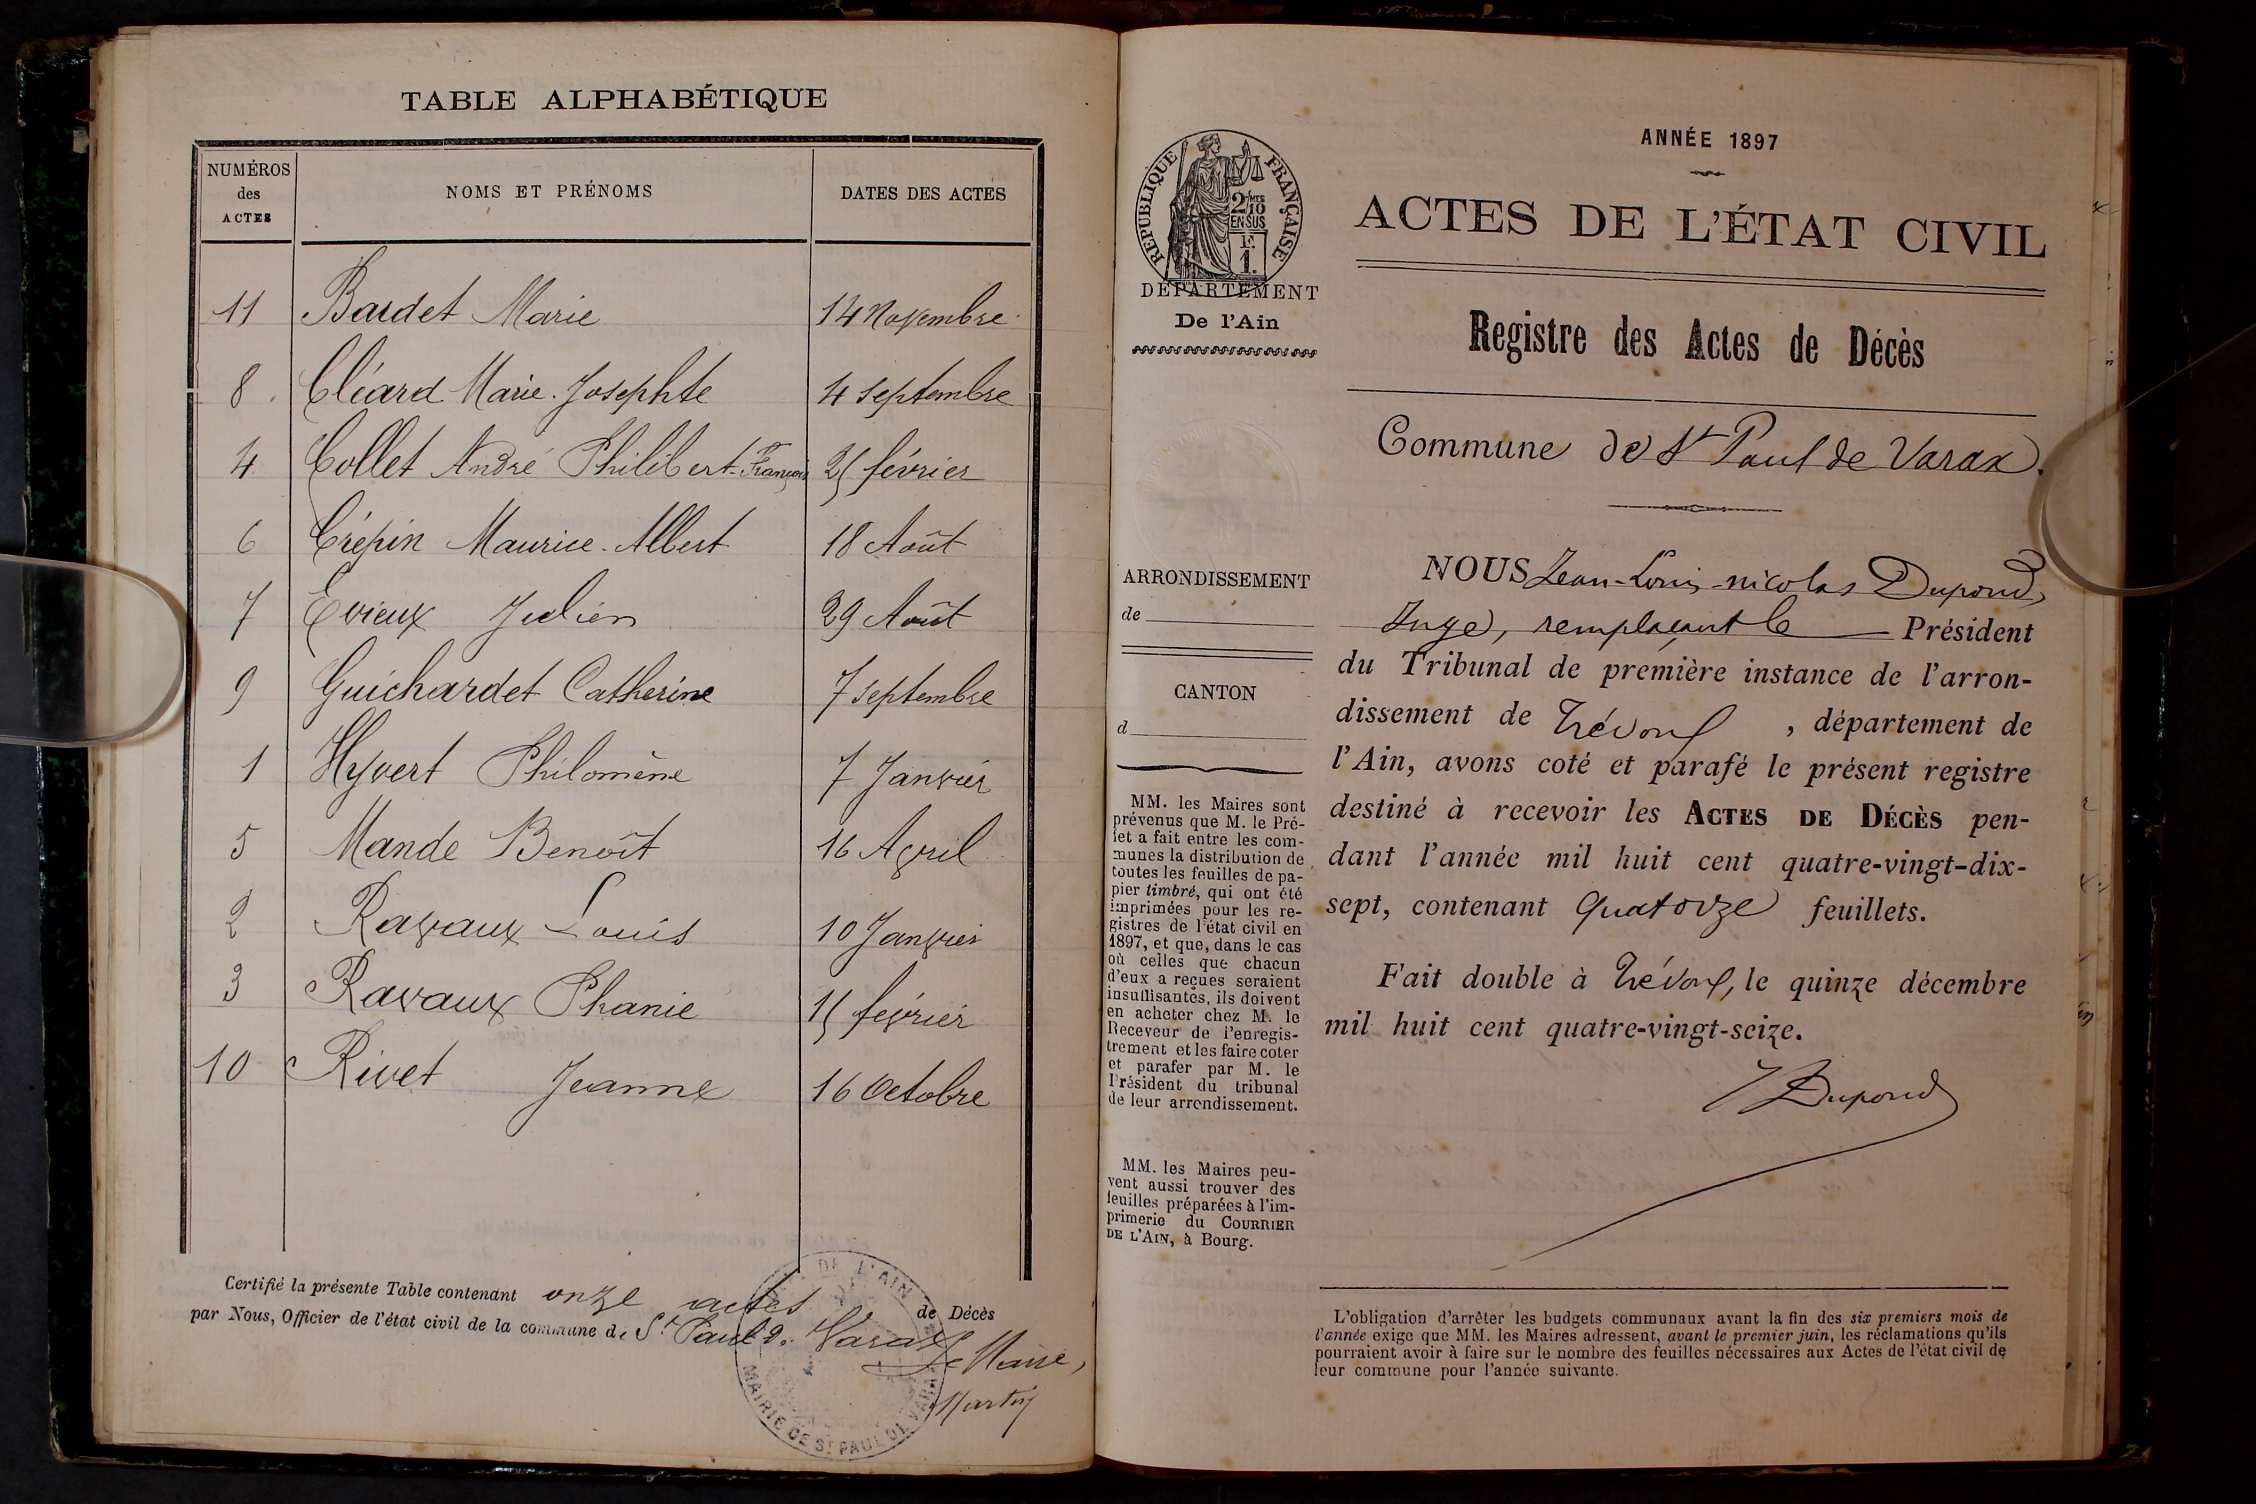 TABLE ALPHABÉTIQUE
NUMÉROS des ACTES | NOMS ET PRÉNOMS | DATES DES ACTES
11 Bardet Marie 14 Novembre
8 Cléard Marie-Josephte 4 septembre
4 Collet André Philibert-François 25 février
6 Crépin Maurice-Albert 18 Août
7 Evieux Julien 29 Août
9 Guichardet Catherine 7 septembre
1 Hyvert Philomène 7 Janvier
5 Mande Benoît 16 Avril
2 Ravaux Louis 10 Janvier
3 Ravaux Phanie 15 février
10 Rivet Jeanne 16 Octobre
Certifié la présente Table contenant onze actes de Décès
par Nous, Officier de l'état civil de la commune de St Paul de Varax
Le Maire,
Martin
DE L'AIN
MAIRIE DE ST PAUL DE VARAX
RÉPUBLIQUE FRANÇAISE
2/10MES
EN SUS
F.
1.
DÉPARTEMENT
De l'Ain
ARRONDISSEMENT
de
CANTON
d
MM. les Maires sont
prévenus que M. le Pré-
fet a fait entre les com-
munes la distribution de
toutes les feuilles de pa-
pier timbré, qui ont été
imprimées pour les re-
gistres de l'état civil en
1897, et que, dans le cas
où celles que chacun
d'eux a reçues seraient
insuffisantes, ils doivent
en acheter chez M. le
Receveur de l'enregis-
trement et les faire coter
et parafer par M. le
Président du tribunal
de leur arrondissement.
MM. les Maires peu-
vent aussi trouver des
feuilles préparées à l'im-
primerie du COURRIER
DE L'AIN, à Bourg.
ANNÉE 1897
ACTES DE L'ÉTAT CIVIL
Registre des Actes de Décès
Commune de St Paul de Varax.
NOUS Jean-Louis-nicolas Dupond,
Juge, remplaçant le Président
du Tribunal de première instance de l'arron-
dissement de Trévoux, département de
l'Ain, avons coté et parafé le présent registre
destiné à recevoir les ACTES DE DÉCÈS pen-
dant l'année mil huit cent quatre-vingt-dix-
sept, contenant Quatorze feuillets.
Fait double à Trévoux, le quinze décembre
mil huit cent quatre-vingt-seize.
Dupond
L'obligation d'arrêter les budgets communaux avant la fin des six premiers mois de
l'année exige que MM. les Maires adressent, avant le premier juin, les réclamations qu'ils
pourraient avoir à faire sur le nombre des feuilles nécessaires aux Actes de l'état civil de
leur commune pour l'année suivante.